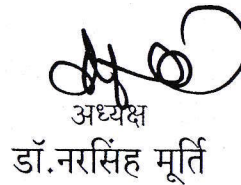 अध्यक्ष
डॉ.नरसिंह मूर्ति